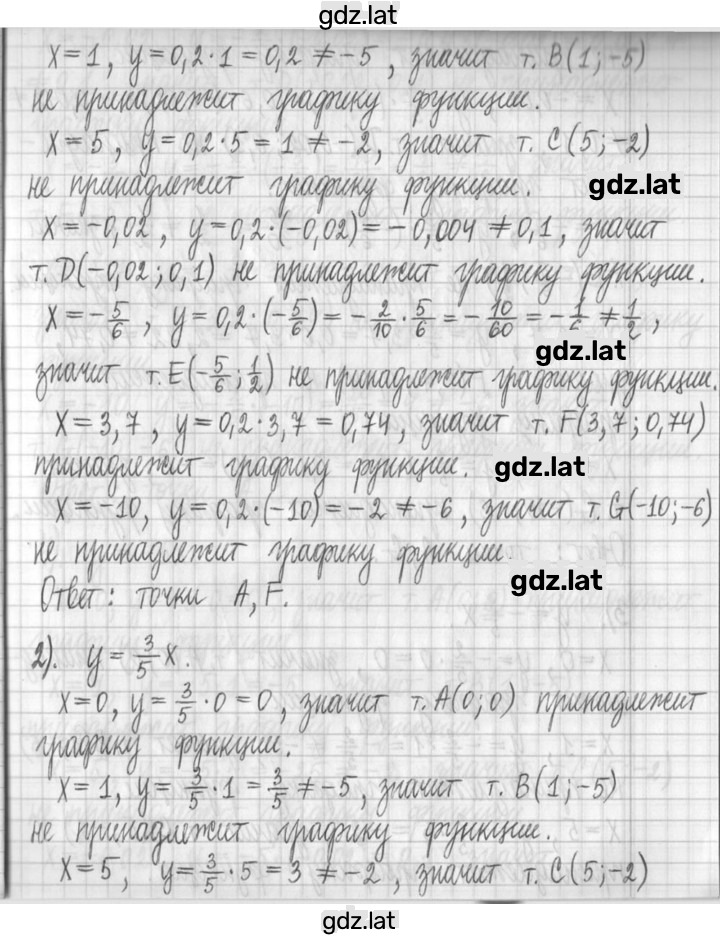 gdz.lat
x=1, y=0,2·1=0,2≠-5, значит т. B(1;-5)
не принадлежит графику функции.
x=5, y=0,2·5=1≠-2, значит т. C(5;-2)
не принадлежит графику функции. gdz.lat
x=-0,02, y=0,2·(-0,02)=-0,004≠0,1, значит
т. D(-0,02;0,1) не принадлежит графику функции.
x=-5/6, y=0,2·(-5/6)=-2/10·5/6=-10/60=-1/6≠1/2,
gdz.lat
значит т. E(-5/6;1/2) не принадлежит графику функции.
x=3,7, y=0,2·3,7=0,74, значит т. F(3,7;0,74)
принадлежит графику функции. gdz.lat
x=-10, y=0,2·(-10)=-2≠-6, значит т. G(-10;-6)
не принадлежит графику функции.
gdz.lat
Ответ: точки A, F.
2). y=3/5x.
x=0, y=3/5·0=0, значит т. A(0;0) принадлежит
графику функции.
x=1, y=3/5·1=3/5≠-5, значит т. B(1;-5)
не принадлежит графику функции.
x=5, y=3/5·5=3≠-2, значит т. C(5;-2)
gdz.lat